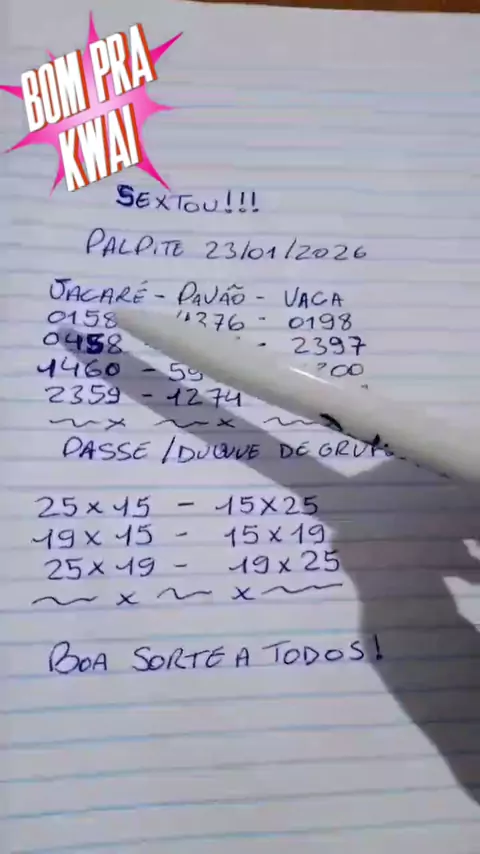 BOM PRA
KWAI
SEXTOU!!!
PALPITE 23/01/2026
JACARÉ - PAVÃO - VACA
0158 - 0198
0458 - 2397
1460 -
2359 - 1274
PASSE / DUQUE DE
25 x 15 - 15 x 25
19 x 15 - 15 x 19
25 x 19 - 19 x 25
BOA SORTE A TODOS!